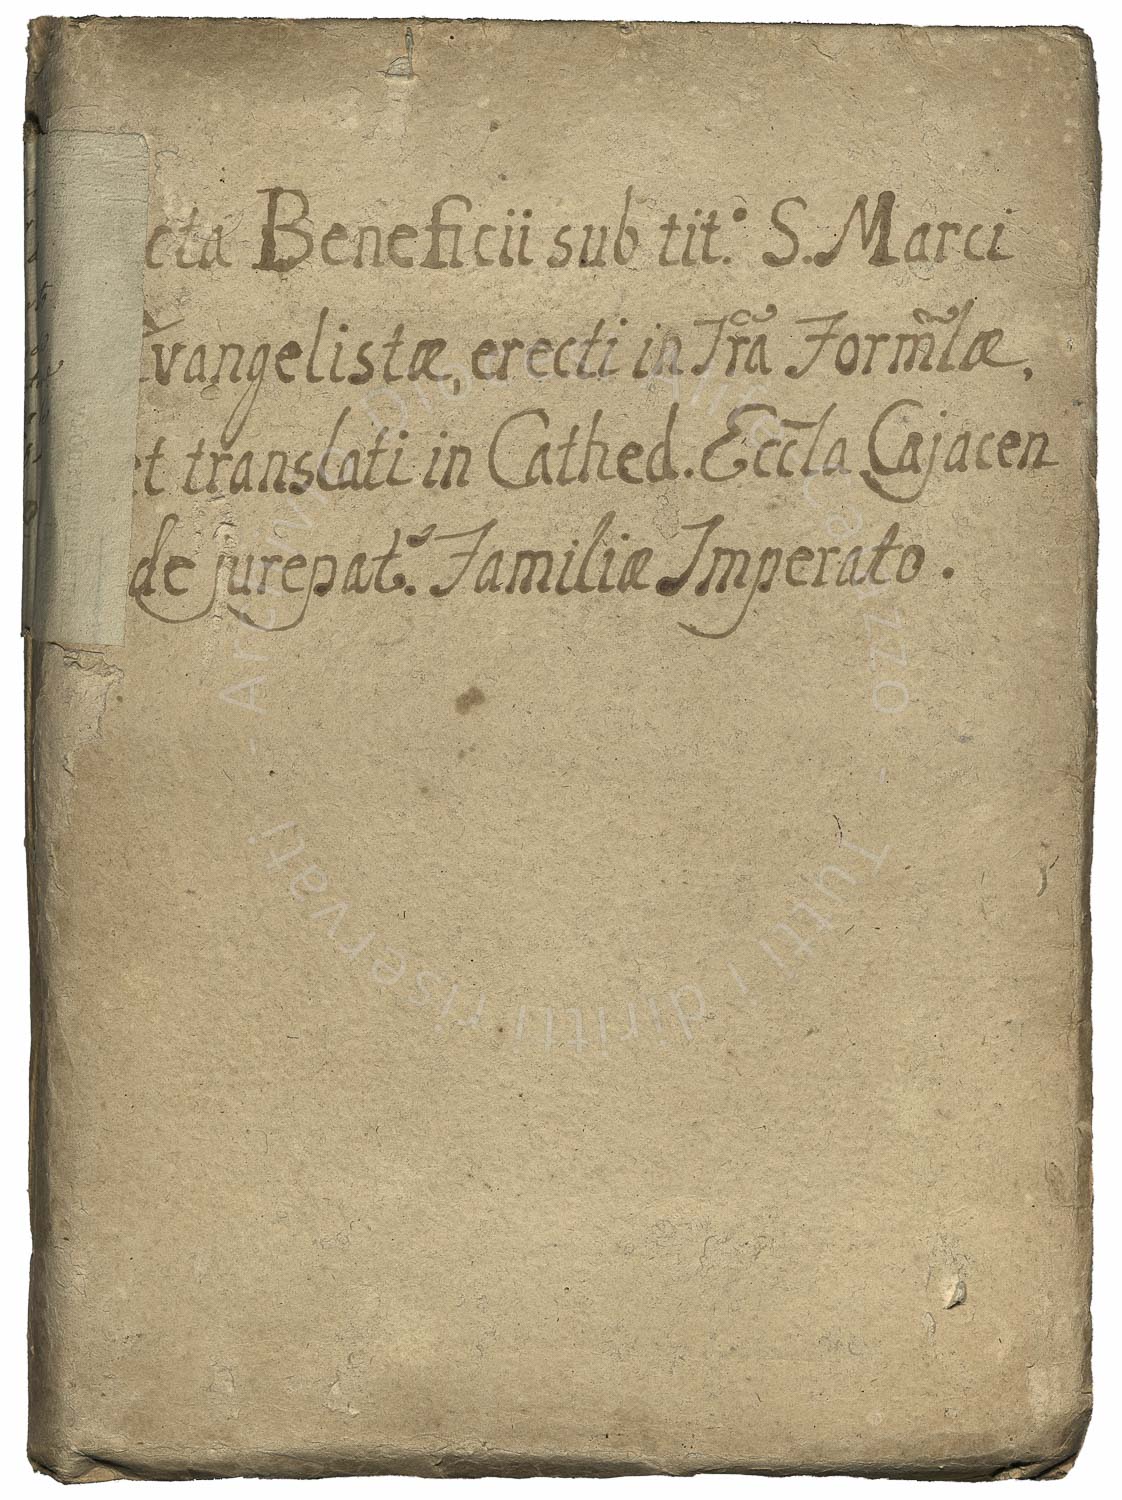 cta Beneficii sub tit.º S. Marci
Evangelistæ, erecti in Trã Form̃læ,
et translati in Cathed. Ecc̃la Cajacen
de jurepat.º Familiæ Imperato.
Archivio Diocesi Alife Caiazzo - Tutti i diritti riservati -